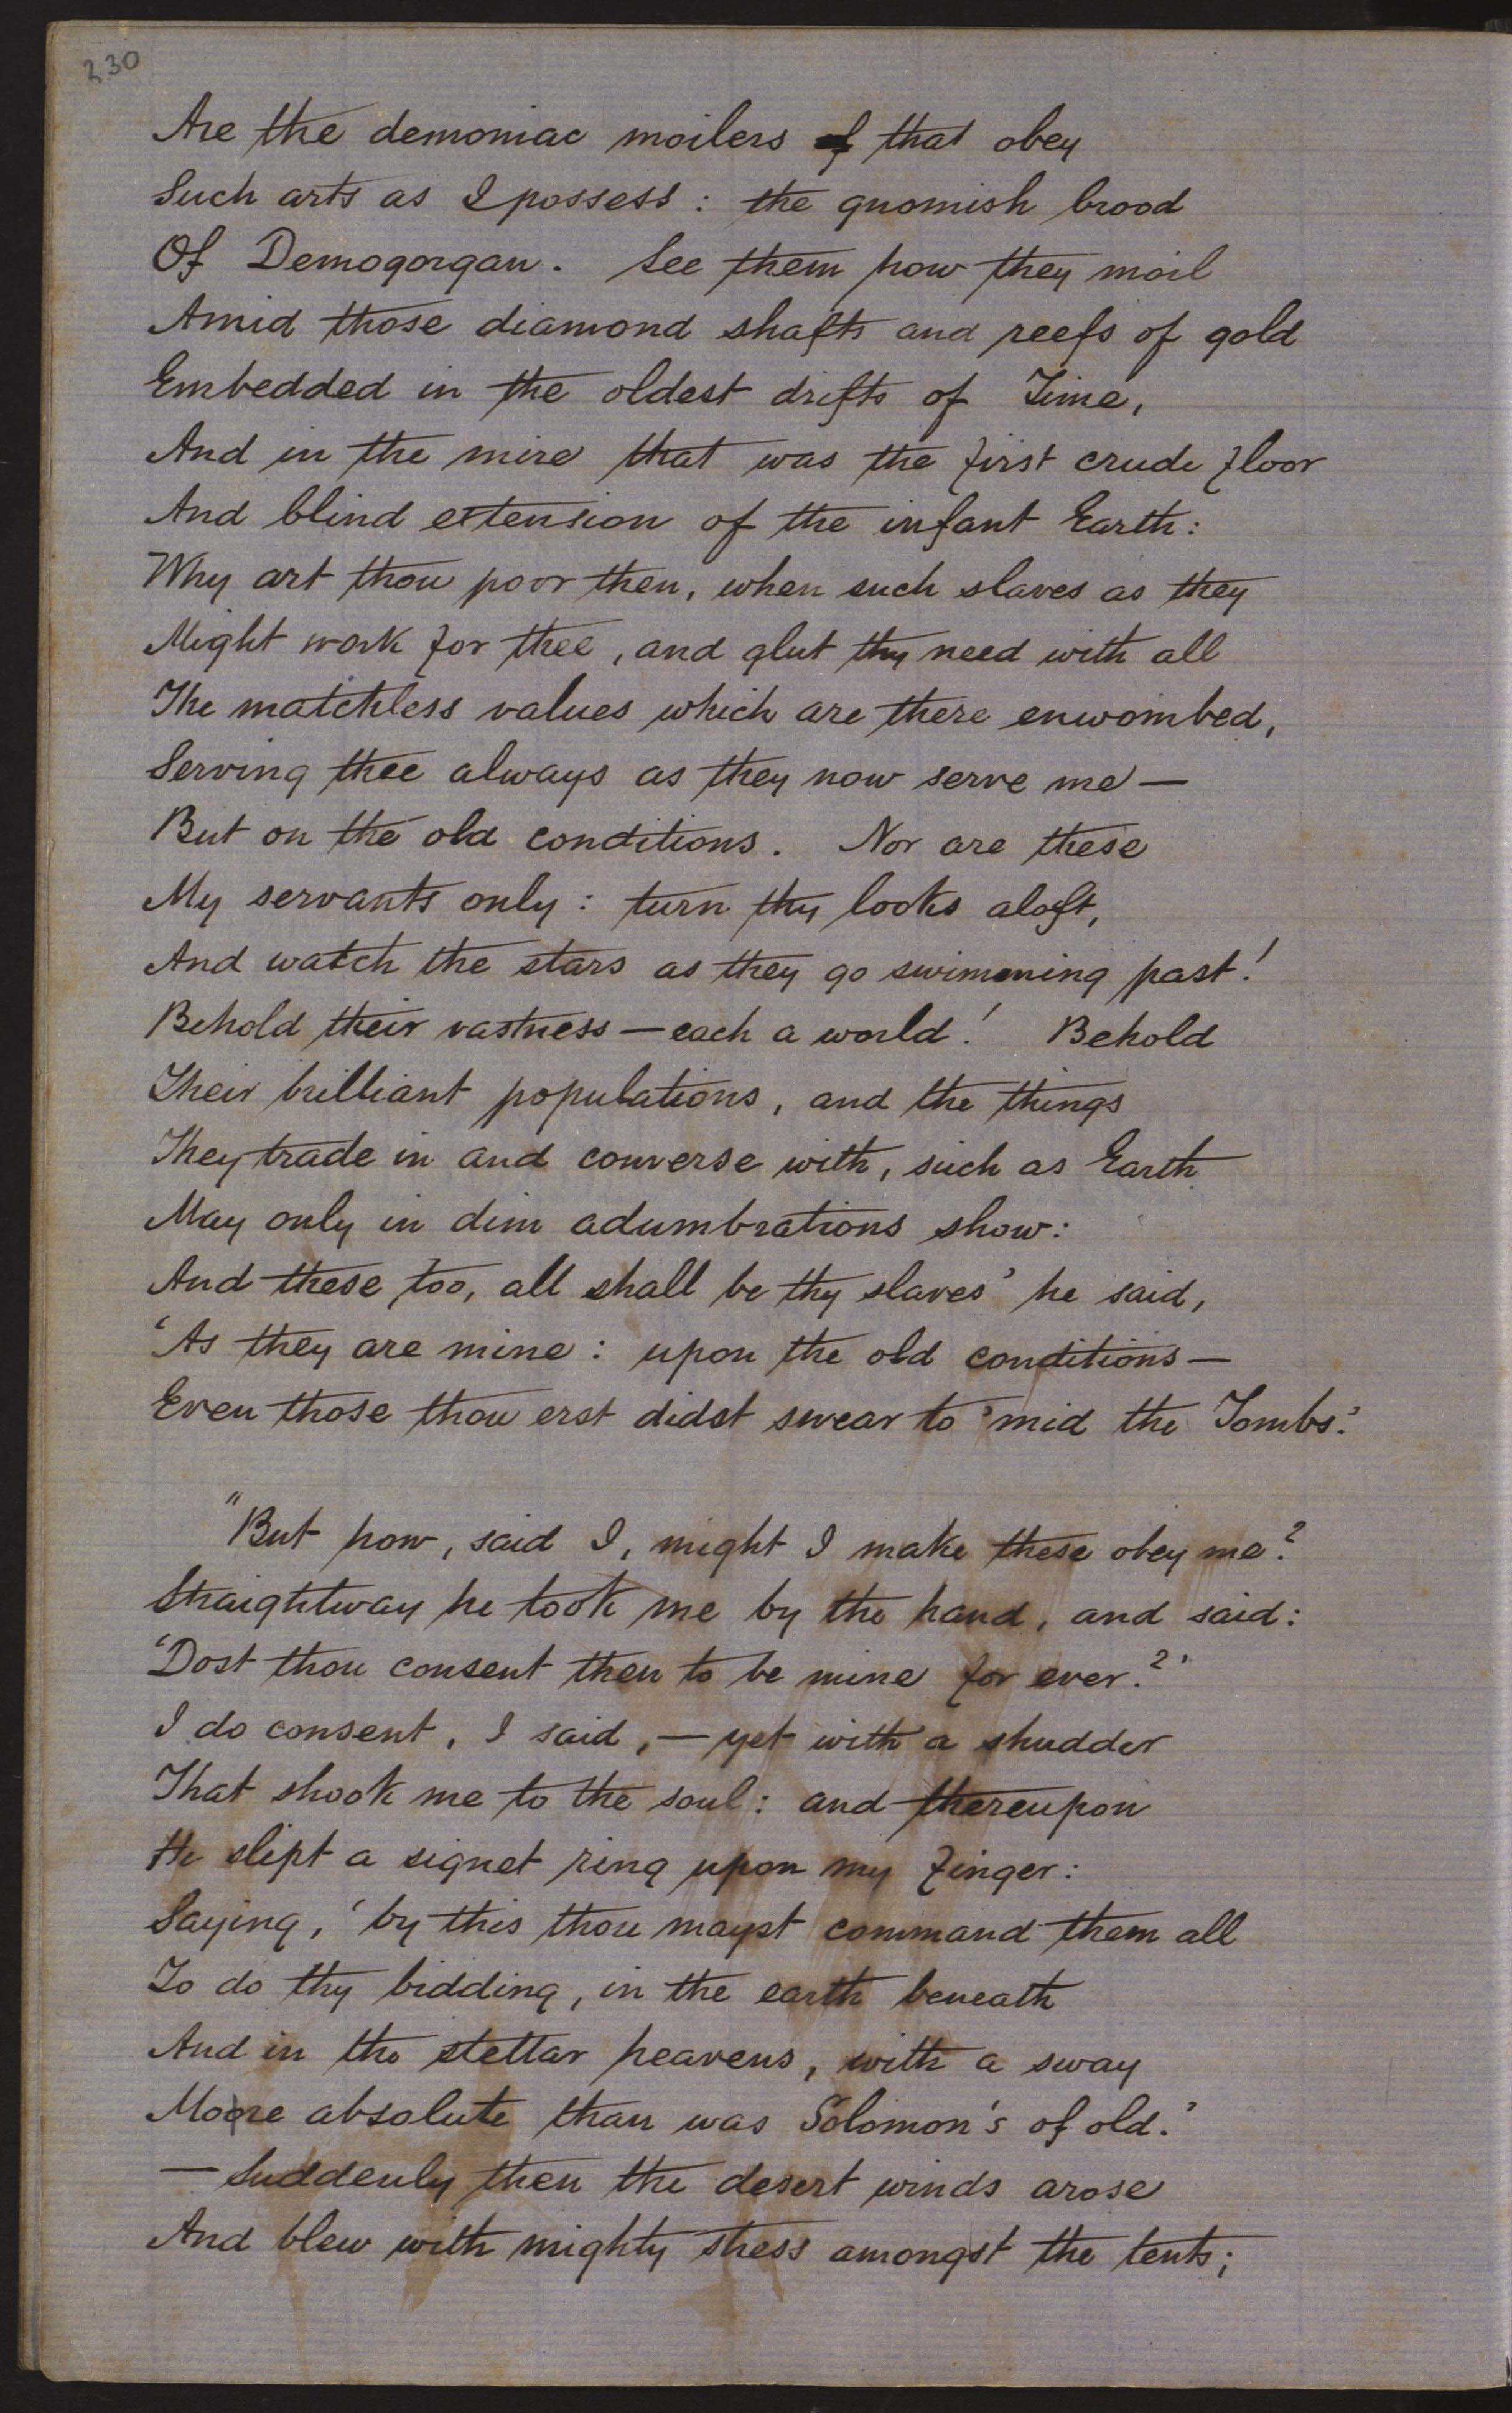 230
Are the demoniac moilers of that obey
Such arts as I possess: the gnomish brood
Of Demogorgan. See them how they moil
Amid those diamond shafts and reefs of gold
Embedded in the oldest drifts of Time,
And in the mire that was the first crude floor
And blind extension of the infant Earth:
Why art thou poor then, when such slaves as they
Might work for thee, and glut thy need with all
The matchless values which are there enwombed,
Serving thee always as they now serve me—
But on the old conditions. Nor are these
My servants only: turn thy looks aloft,
And watch the stars as they go swimming past!
Behold their vastness—each a world! Behold
Their brilliant populations, and the things
They trade in and converse with, such as Earth
May only in dim adumbrations show:
And these too, all shall be thy slaves' he said,
'As they are mine: upon the old conditions—
Even those thou erst didst swear to 'mid the Tombs.'
"But how, said I, might I make these obey me?
Straightway he took me by the hand, and said:
'Dost thou consent then to be mine for ever?'
I do consent, I said,—yet with a shudder
That shook me to the soul: and thereupon
He slipt a signet ring upon my finger:
Saying, 'by this thou mayst command them all
To do thy bidding, in the earth beneath
And in the stellar heavens, with a sway
More absolute than was Solomon's of old.'
—Suddenly then the desert winds arose
And blew with mighty stress amongst the tents;